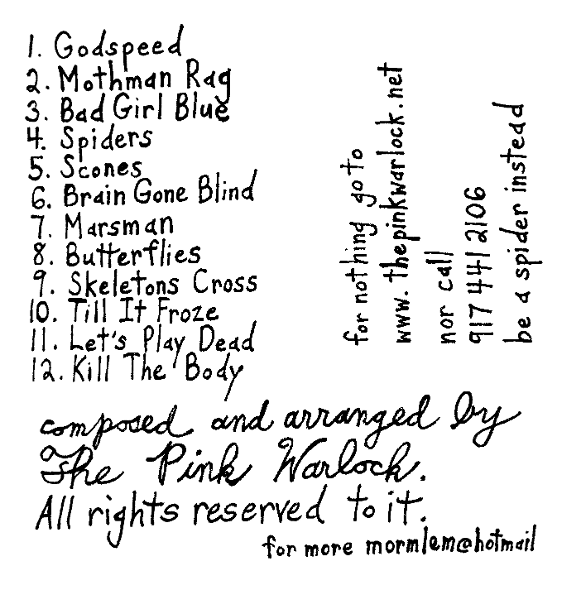 1. Godspeed
2. Mothman Rag
3. Bad Girl Blue
4. Spiders
5. Scones
6. Brain Gone Blind
7. Marsman
8. Butterflies
9. Skeletons Cross
10. Till It Froze
11. Let's Play Dead
12. Kill The Body
for nothing go to
www.thepinkwarlock.net
nor call
917 441 2106
be a spider instead
composed and arranged by
The Pink Warlock.
All rights reserved to it.
for more mormlem@hotmail